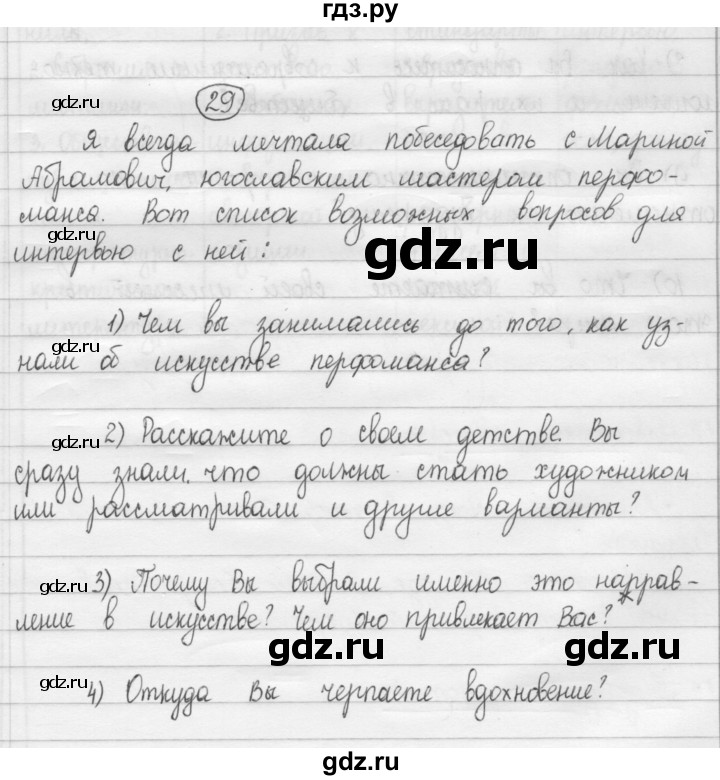 гдз.ру
gdz.ru
29
Я всегда мечтала побеседовать с Мариной
Абрамович, югославским мастером перфо-
gdz.ru
манса. Вот список возможных вопросов для
gdz.ru
интервью с ней:
gdz.ru
1) Чем вы занимались до того, как уз-
gdz.ru
нали об искусстве перфоманса?
2) Расскажите о своем детстве. Вы
gdz.ru
сразу знали, что должны стать художником
или рассматривали и другие варианты?
gdz.ru
3) Почему Вы выбрали именно это направ-
ление в искусстве? Чем оно привлекает Вас?
gdz.ru
gdz.ru
gdz.ru
4) Откуда Вы черпаете вдохновение?
gdz.ru